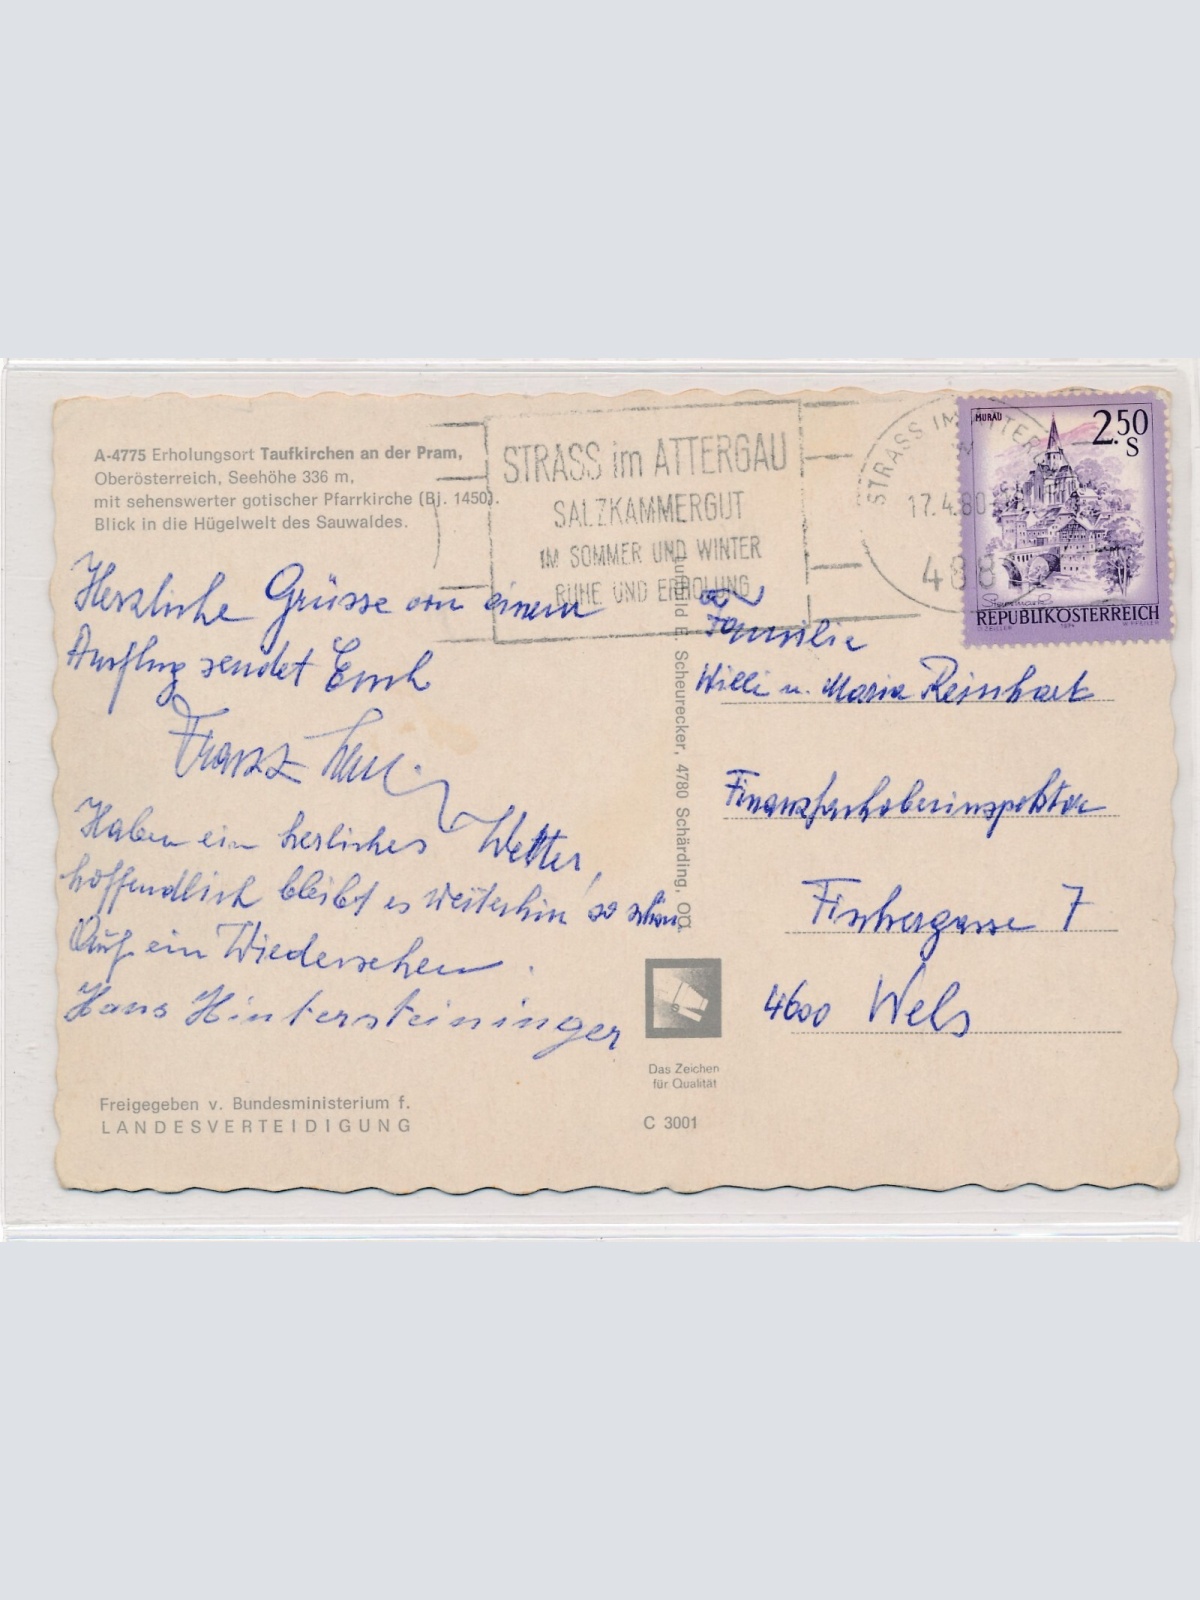 A-4775 Erholungsort Taufkirchen an der Pram,
Oberösterreich, Seehöhe 336 m,
mit sehenswerter gotischer Pfarrkirche (Bj. 1450).
Blick in die Hügelwelt des Sauwaldes.
STRASS im ATTERGAU
SALZKAMMERGUT
IM SOMMER UND WINTER
RUHE UND ERHOLUNG
STRASS IM ATTERG
17.4.80
488
MURAU
2.50
S
REPUBLIK ÖSTERREICH
Herzliche Grüsse von einem
Ausflug sendet Euch
Franz
Haben ein herliches Wetter,
hoffendlich bleibt es weiterhin so schön.
Auf ein Wiedersehen.
Hans Hintersteininger
Freigegeben v. Bundesministerium f.
LANDESVERTEIDIGUNG
Aufbild E. Scheurecker, 4780 Schärding, OÖ.
Das Zeichen
für Qualität
C 3001
Familie
Willi u. Maria Reinhart
Fischergasse 7
4600 Wels